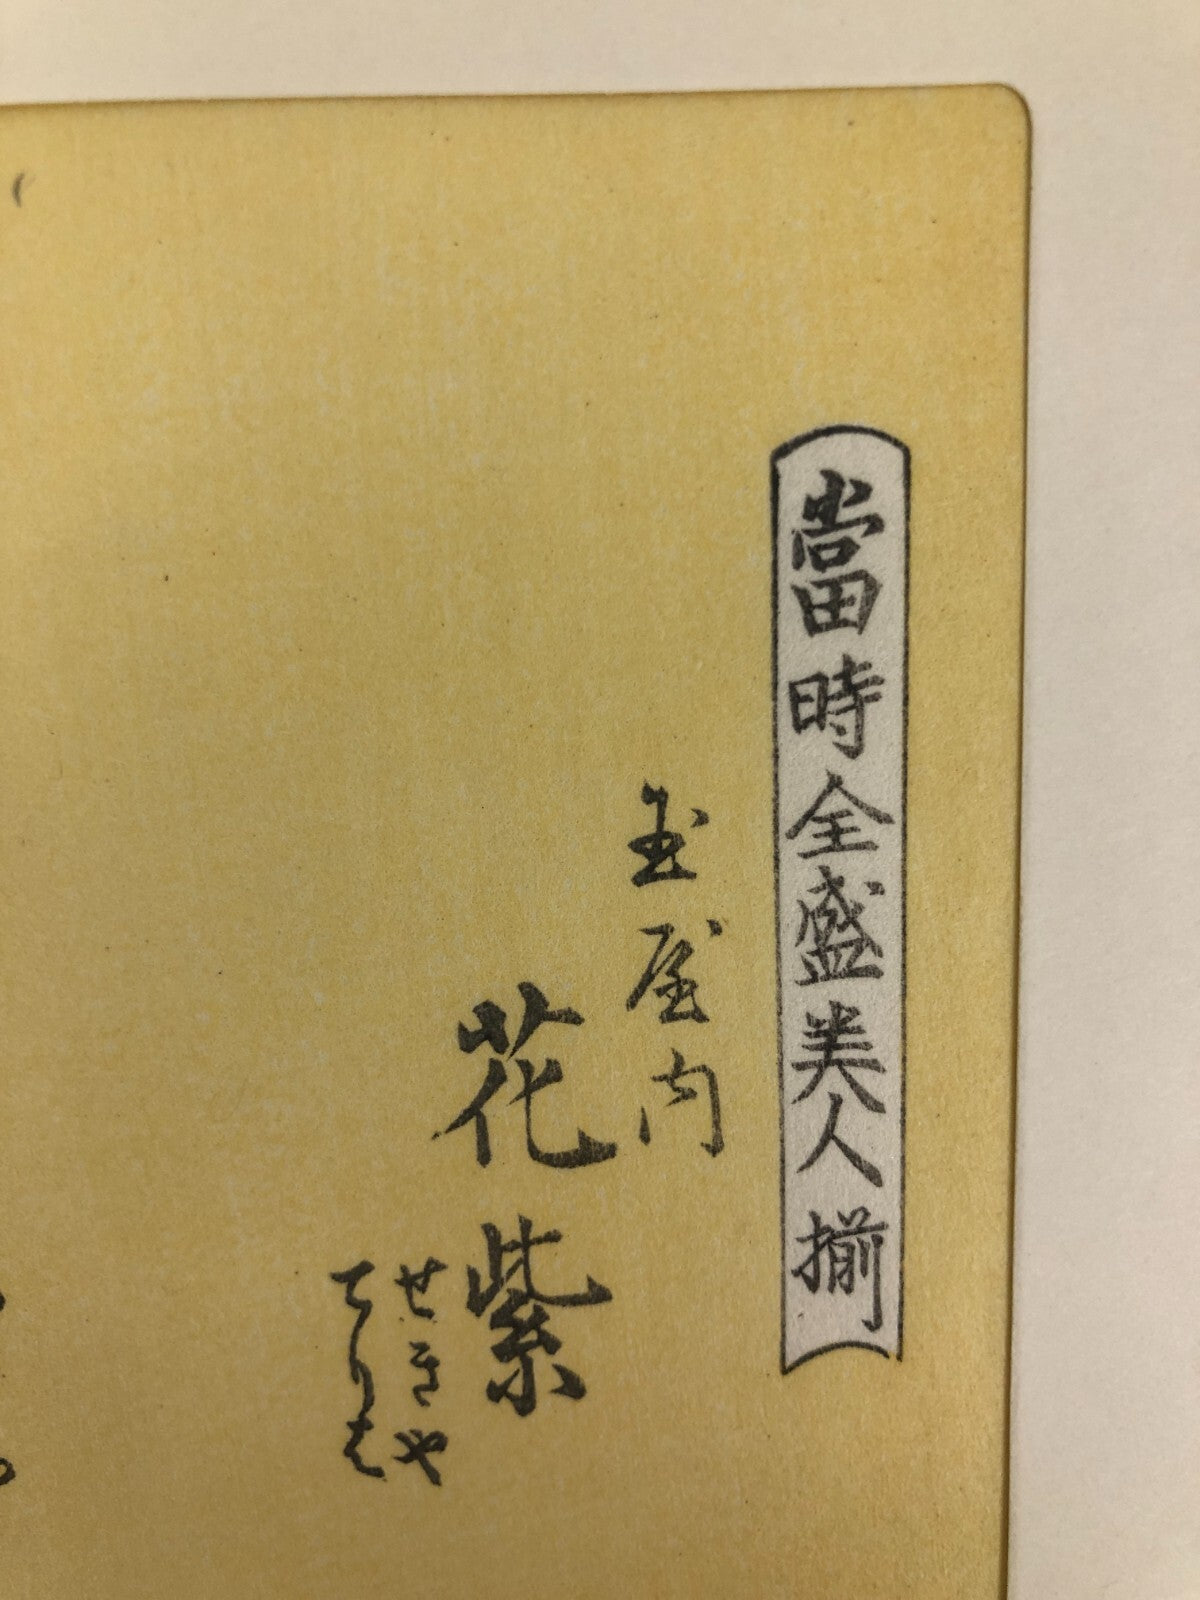 當時全盛美人揃
玉屋内
花紫
せきや
てりは